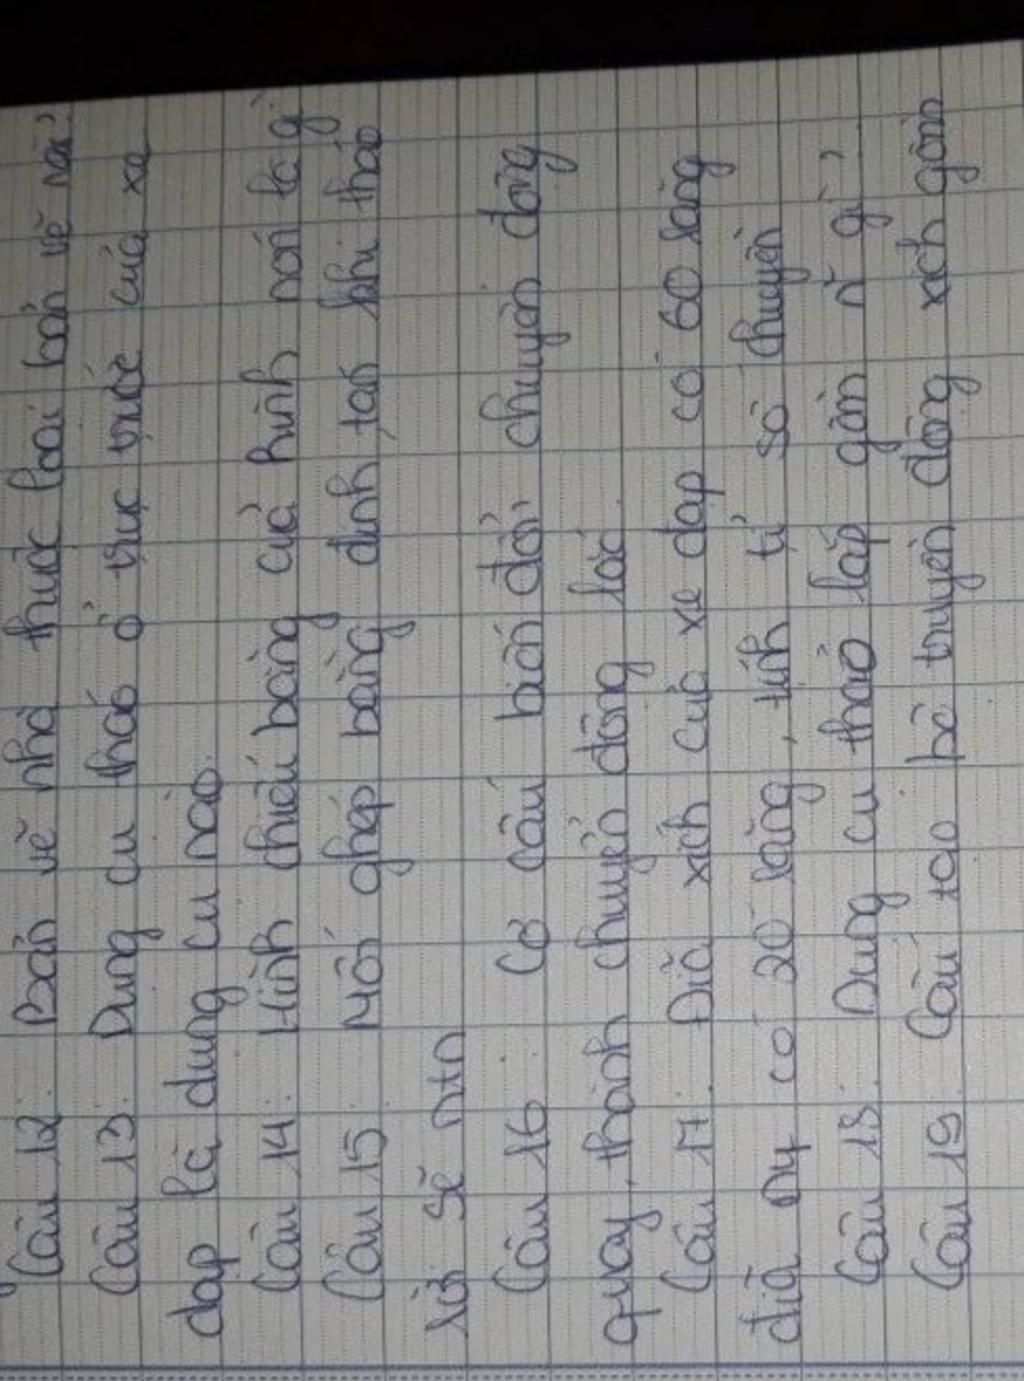 Câu 12. Bản vẽ nhà thuộc loại bản vẽ nào?
Câu 13. Dụng cụ tháo ở trục trước của xe
đạp là dụng cụ nào.
Câu 14. Hình chiếu bằng của hình nón là gì
Câu 15. Mối ghép bằng đinh tán khi tháo
rời sẽ ntn
Câu 16. Cơ cấu biến đổi chuyển động
quay thành chuyển động lắc.
Câu 17. Đĩa xích của xe đạp có 60 răng
đĩa ny có 20 răng, tính tỉ số chuyền
Câu 18. Dụng cụ tháo lắp gồm n~ gì?
Câu 19 Cấu tạo bộ truyền động xích gồm